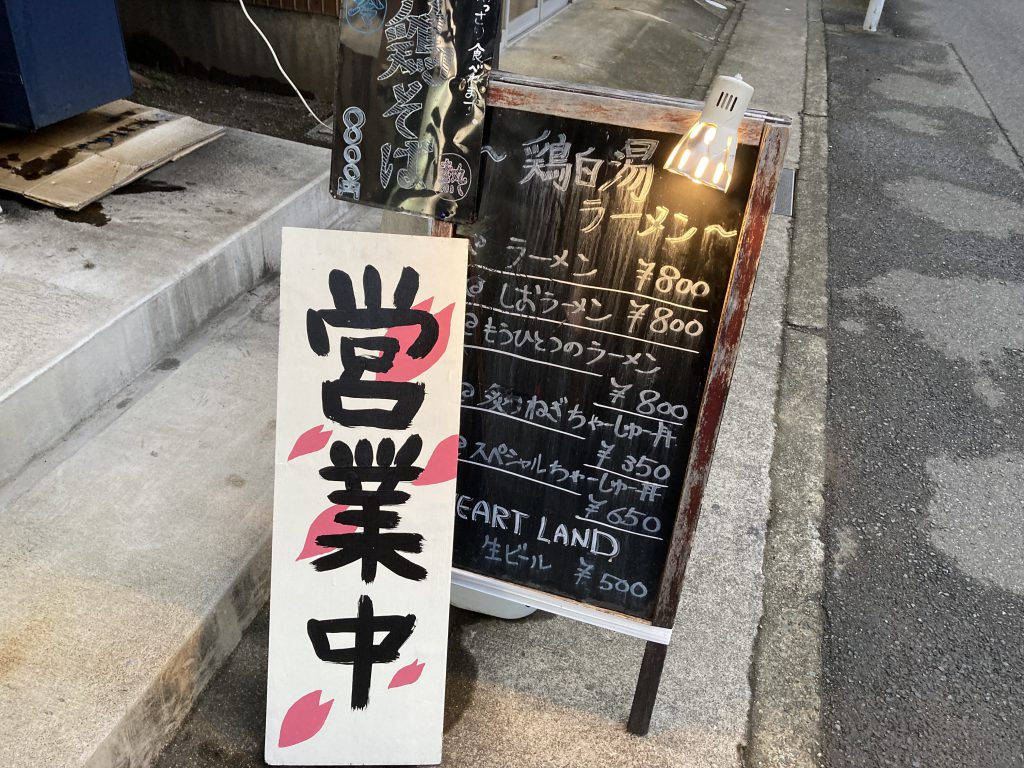 さり食べるっ
そば
¥1000
熟
～鶏白湯
ラーメン～
ラーメン ¥800
しおラーメン ¥800
もうひとつのラーメン
¥800
炙りねぎちゃーしゅー丼
¥350
スペシャルちゃーしゅー丼
¥650
EART LAND
生ビール ¥500
営業中